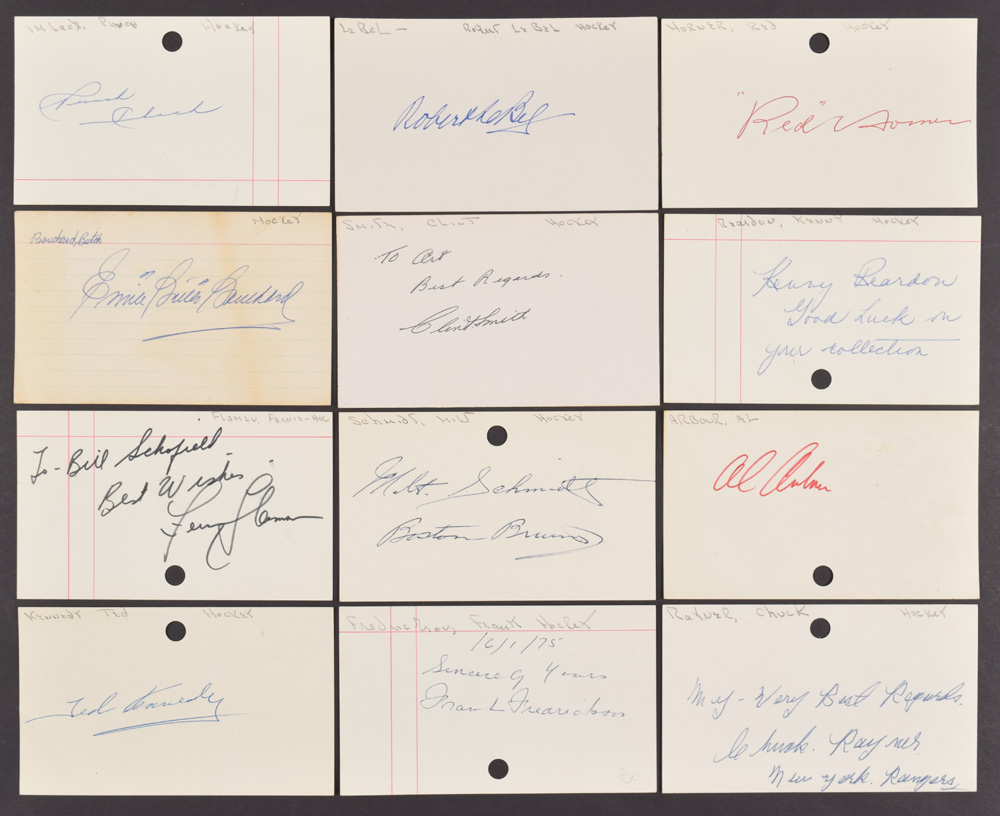 Imlach, Punch Hockey
Punch
Imlach
LeBel — Robert LeBel Hockey
Robert LeBel
Horner, Red Hockey
"Red" Horner
Hockey
Bouchard, Butch
Emile "Butch" Bouchard
Smith, Clint Hockey
To Art
Best Regards.
Clint Smith
Reardon, Kenny Hockey
Kenny Reardon
Good Luck on
your collection
Flaman, Fernie-Hoc
To - Bill Schofield
Best Wishes
Ferny Flaman
Schmidt, Milt Hockey
Milt. Schmidt
Boston Bruins
Arbour, Al
Al Arbour
Kennedy Ted Hockey
Ted Kennedy
Fredrickson, Frank Hockey
16/1/75
Sincerely Yours
Frank Fredrickson
Rayner, Chuck Hockey
My - Very Best Regards.
Chuck. Rayner,
New york. Rangers.